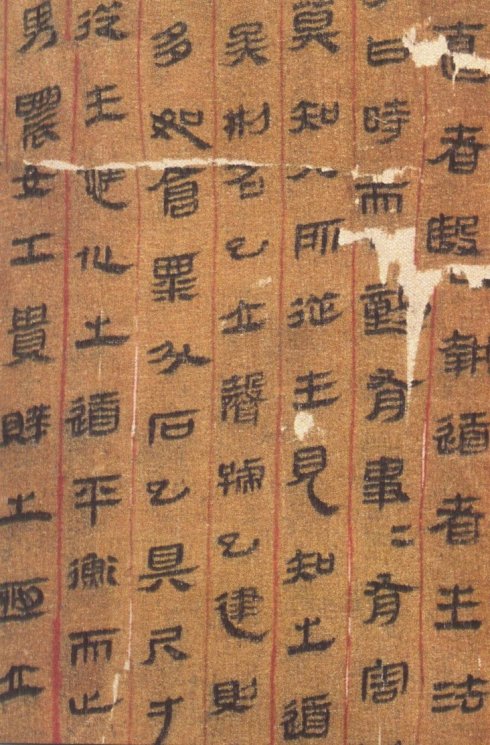 直者殹執道者生法
曰時而動有事〻有害
莫知其所從生見知之道
矣刑名已立聲號已建則
多如倉粟斗石已具尺寸
從生應化之道平衡而止
男農女工貴賤之恒立